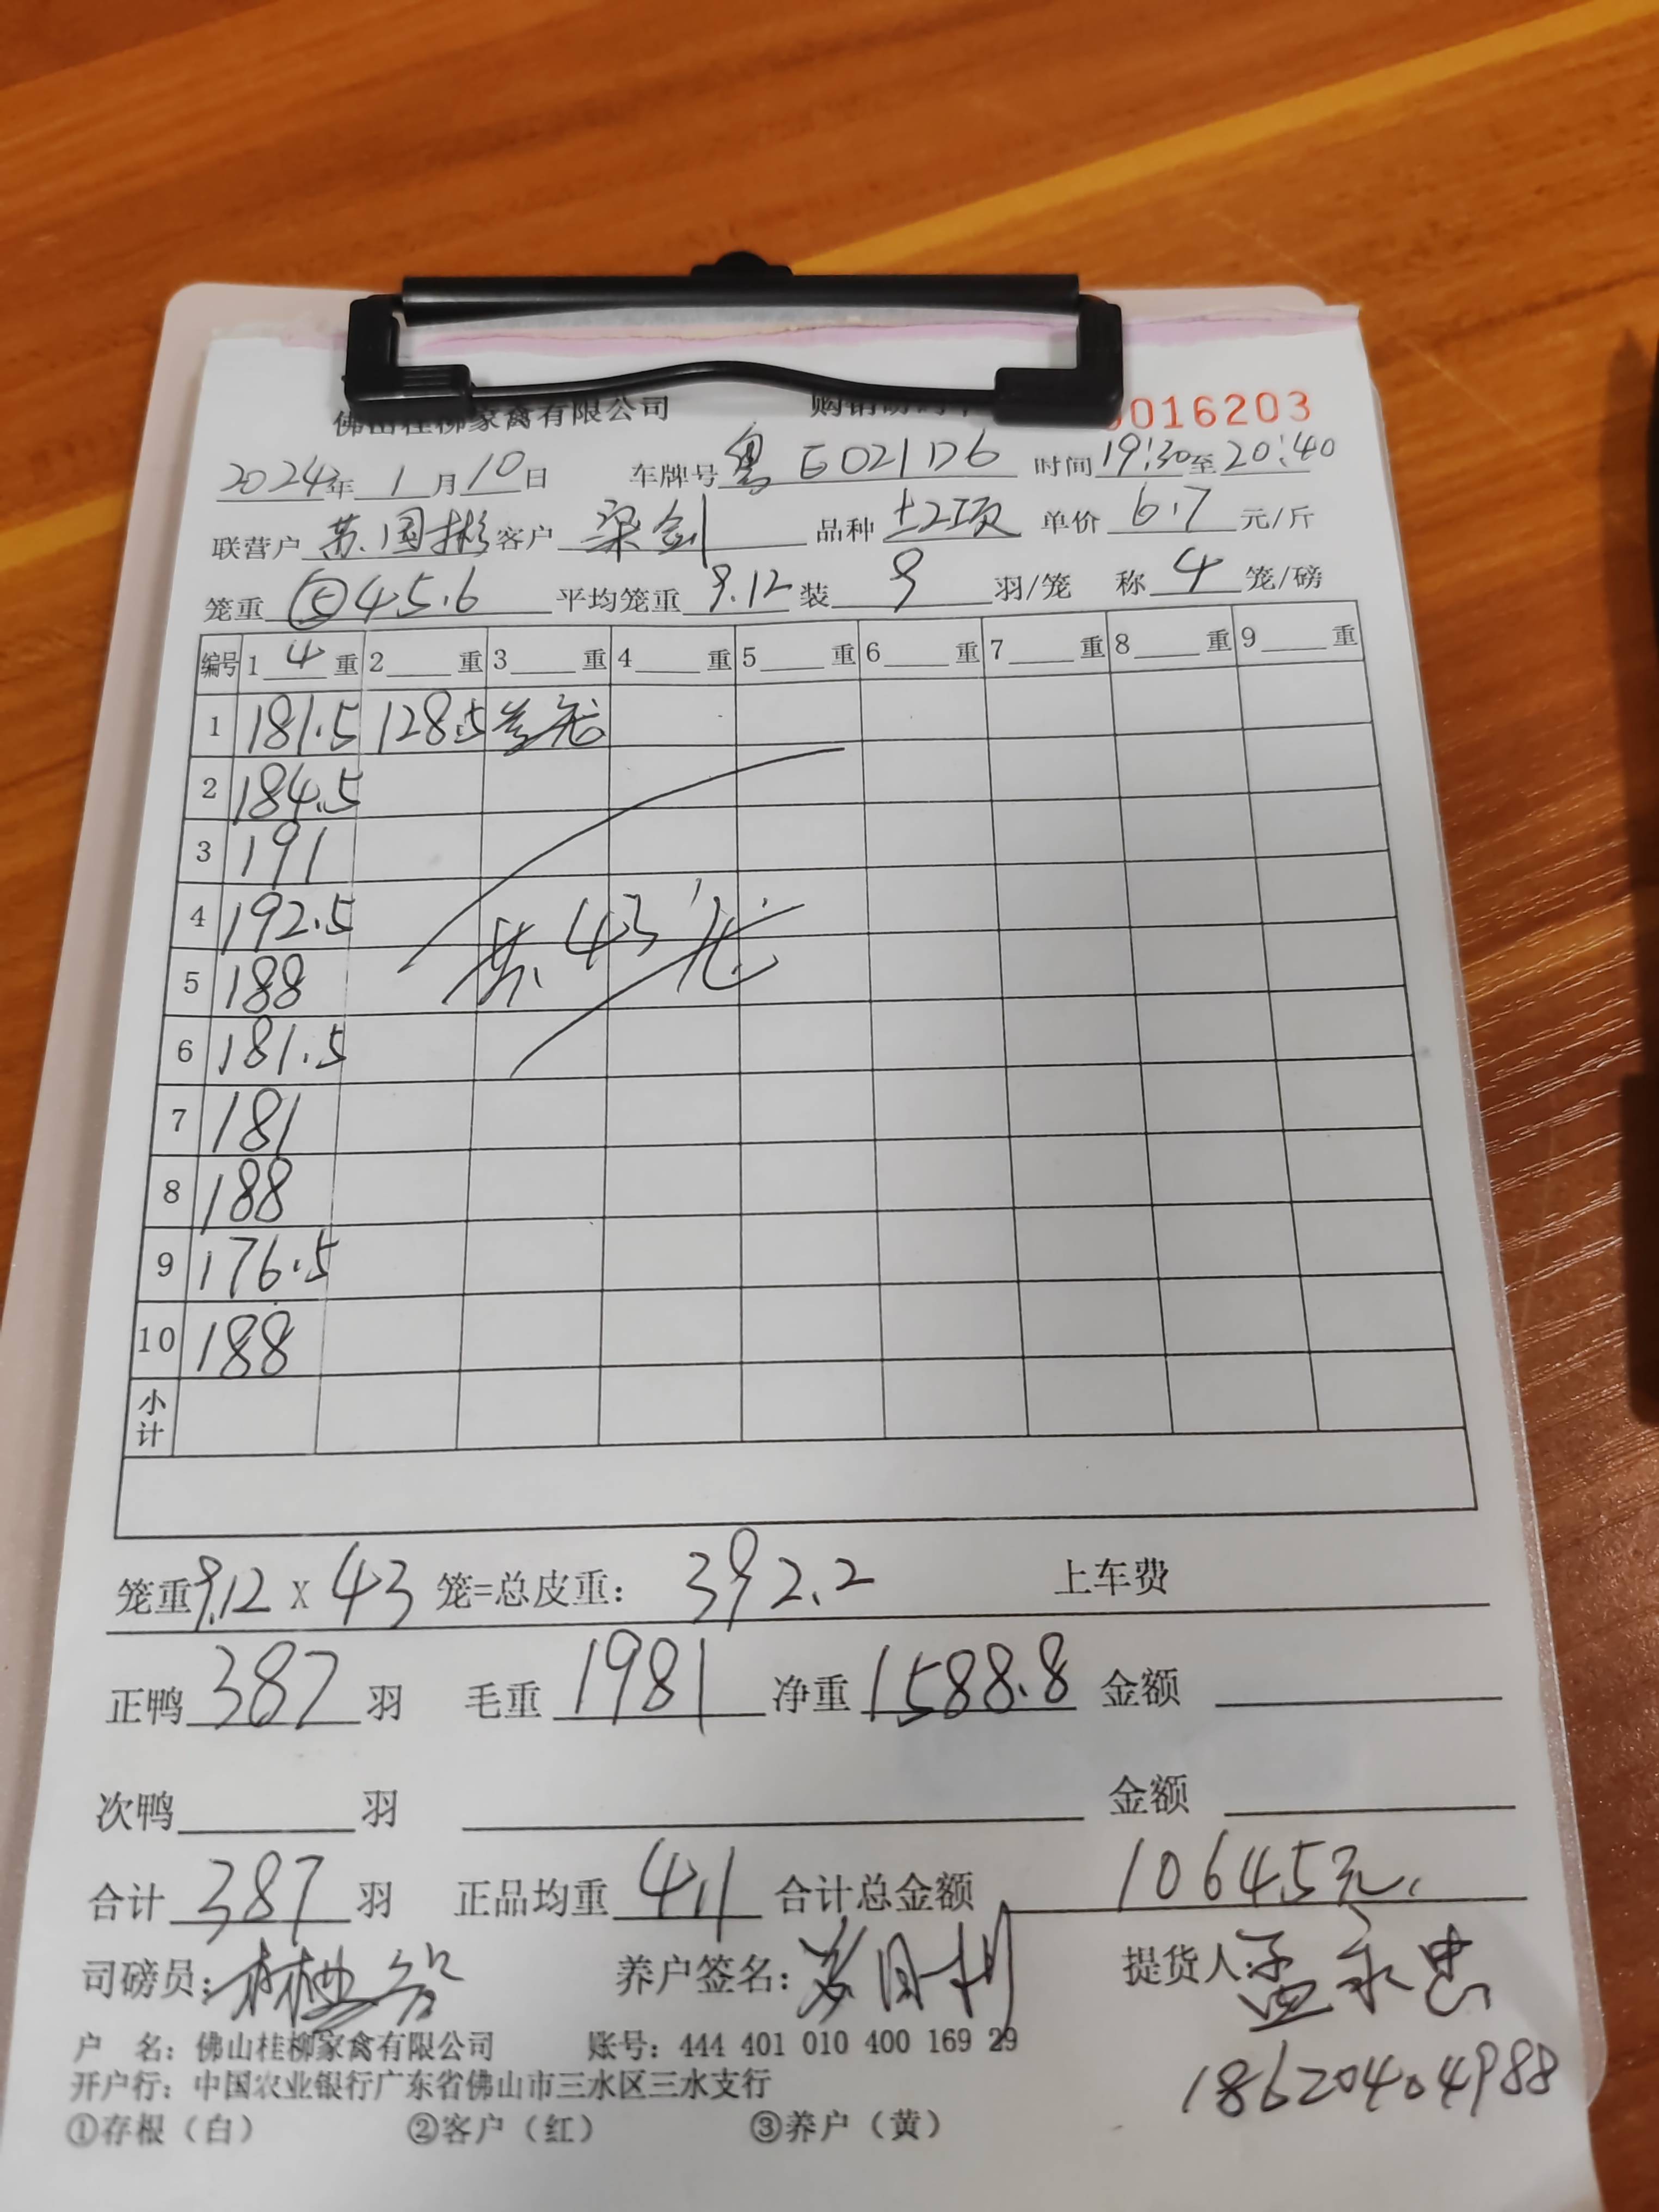 佛山桂柳家禽有限公司 016203
2024年1月10日 车牌号 粤E021D6 时间19:30至20:40
联营户 苏国彬 客户 梁剑 品种 土2项 单价 6.7 元/斤
笼重 ⑤45.6 平均笼重 9.12 装 9 羽/笼 称 4 笼/磅
编号 1 4 重 2 重 3 重 4 重 5 重 6 重 7 重 8 重 9 重
1 181.5 128.5 叁笼
2 184.5
3 191
4 192.5
共43笼
5 188
6 181.5
7 181
8 188
9 176.5
10 188
小计
笼重9.12 x 43 笼=总皮重: 392.2 上车费
正鸭 387 羽 毛重 1981 净重 1588.8 金额
次鸭 羽 金额
合计 387 羽 正品均重 4.1 合计总金额 10645元.
司磅员: 养户签名: 提货人: 孟永忠
户 名: 佛山桂柳家禽有限公司 账号: 444 401 010 400 169 29
18620404988
开户行: 中国农业银行广东省佛山市三水区三水支行
①存根（白） ②客户（红） ③养户（黄）